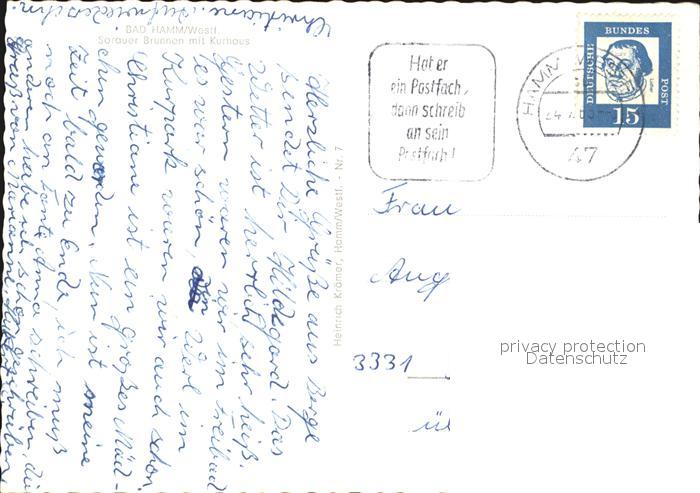 BAD HAMM/Westf.
Sorauer Brunnen mit Kurhaus
Herzliche Grüße aus Berge
sendet Dir Hildegard. Das
Wetter ist herrlich, sehr heiß.
Gestern waren wir im Freibad
es war schön, in Werl im
Kurpark waren wir auch schon
Christiane ist ein großes Mäd-
chen geworden. Nun ist meine
Zeit bald zu Ende, ich muß
noch an Tante Anna schreiben, die
anderen habe ich schon geschrieben
Christiane. Aufwiedersehn.
Heinrich Krämer, Hamm/Westf. - Nr. 7
Hat er
ein Postfach,
dann schreib
an sein
Postfach!
HAMM
47
DEUTSCHE
BUNDES
POST
15
Frau
Aug
3331
ü
privacy protection
Datenschutz